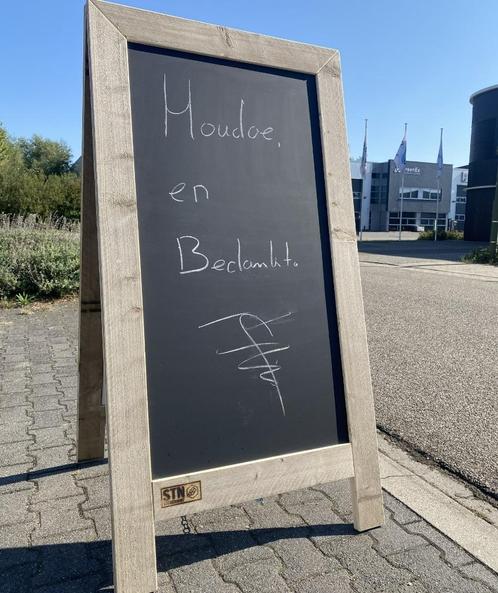 Houdoe,
en
Bedankt.
STN